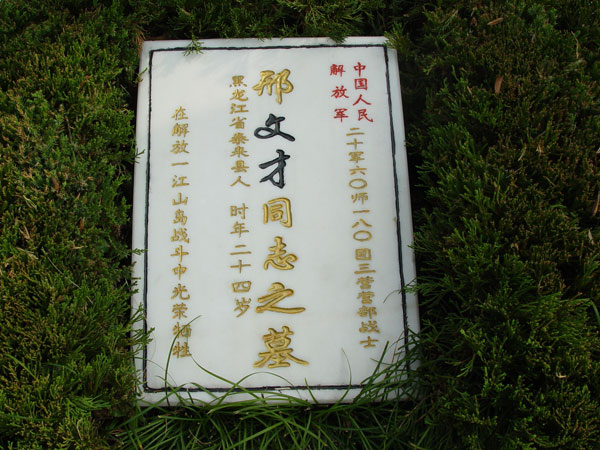 中国人民
解放军
二十军六〇师一八〇团三营营部战士
邢文才同志之墓
黑龙江省泰来县人 时年二十四岁
在解放一江山岛战斗中光荣牺牲